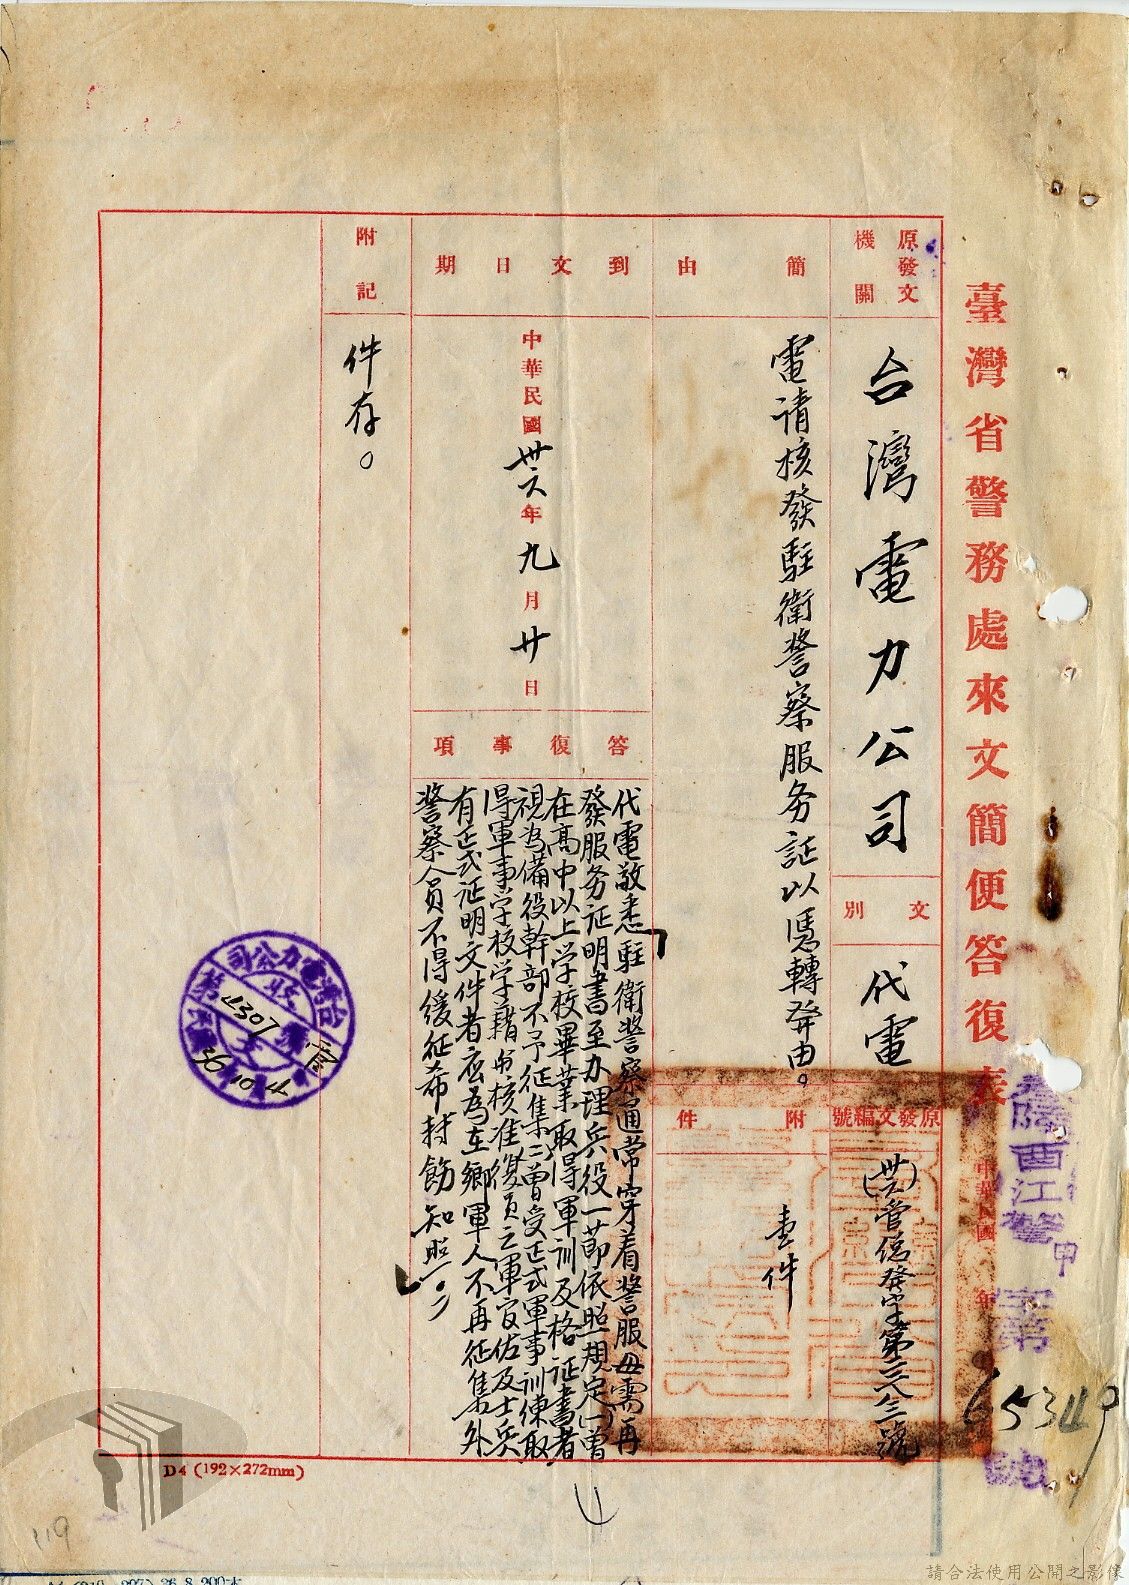 臺灣省警務處來文簡便答復表
中華民國 年
酉江警甲字第65349號
原發文機關
台灣電力公司
文別
代電
原發文編號
簡由
電請核發駐衛警察服务証以憑轉發由。
附件
壹件
到文日期
中華民國卅六年九月廿日
答復事項
代電敬悉駐衛警察通常穿着警服毋需再
發服务证明書至办理兵役一節依照規定(一)曾
在高中以上学校畢業取得軍訓及格证書者
視為備役幹部不予征集(二)曾受正式軍事訓練取
得軍事学校学籍与核准復員之軍官佐及士兵
有正式证明文件者應為在鄉軍人不再征集外
警察人員不得緩征希轉飭知照。
附記
件存。
D4 (192×272mm)
119
請合法使用公開之影像